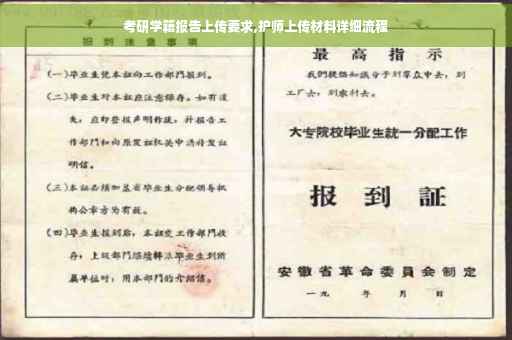 考研学籍报告上传要求,护师上传材料详细流程
报到注意事项
(一)毕业生凭本证向工作部门报到。
(二)毕业生对本证应注意保存。如有遗
失,应即登报声明作废,并报告工
作部门和向原发证机关申请补发证
明信。
(三)本证必须加盖省毕业生分配领导机
构公章方为有效。
(四)毕业生报到后,本证交工作部门收
存,上级部门
毕业生到所
属单位时,用本部门的介绍信。
最高指示
我们提倡知识分子到群众中去,到
工厂去,到农村去。
大专院校毕业生統一分配工作
报到証
安徽省革命委員会制定
一九 年 月 日